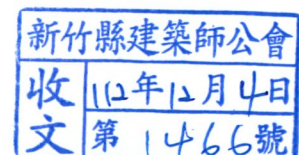 新竹縣建築師公會
收文
112年12月4日
第 1466號